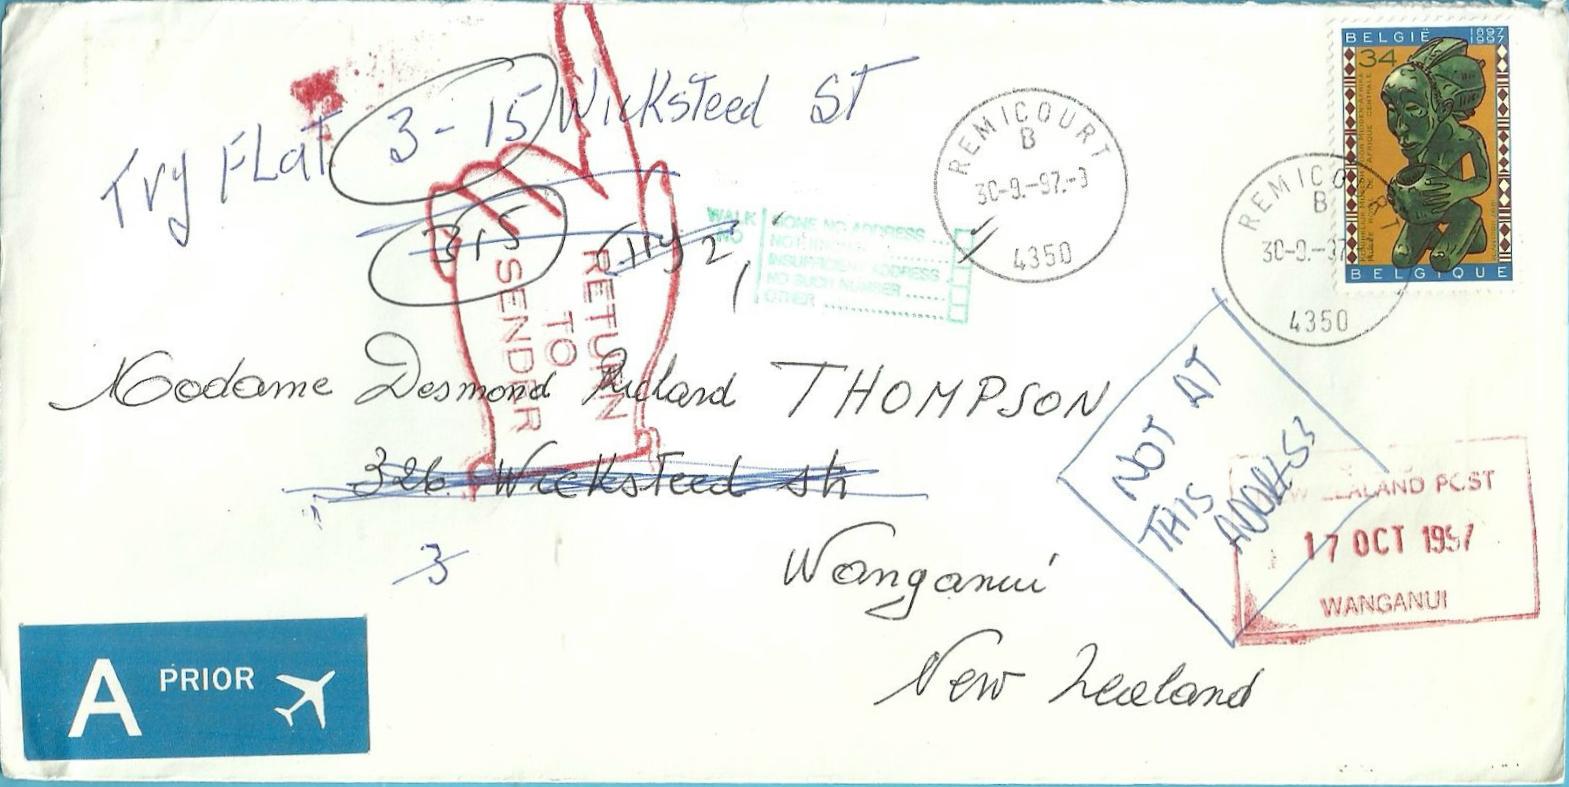 BELGIË 1897 1997
34
BELGIQUE
Try FLat 3-15 Wicksteed ST
315 Try 2,
REMICOURT
B
30-9.-97.-3
4350
REMICO
B
30-9.-97
4350
WALK NO
GONE NO ADDRESS ...
INSUFFICIENT ADDRESS
NO SUCH NUMBER ......
OTHER ................
RETURN
TO
SENDER
Madame Desmond Richard THOMPSON
326 Wicksteed str
3
Wanganui
New Zealand
NOT AT
THIS
ADDRESS
ZEALAND POST
17 OCT 1997
WANGANUI
A PRIOR